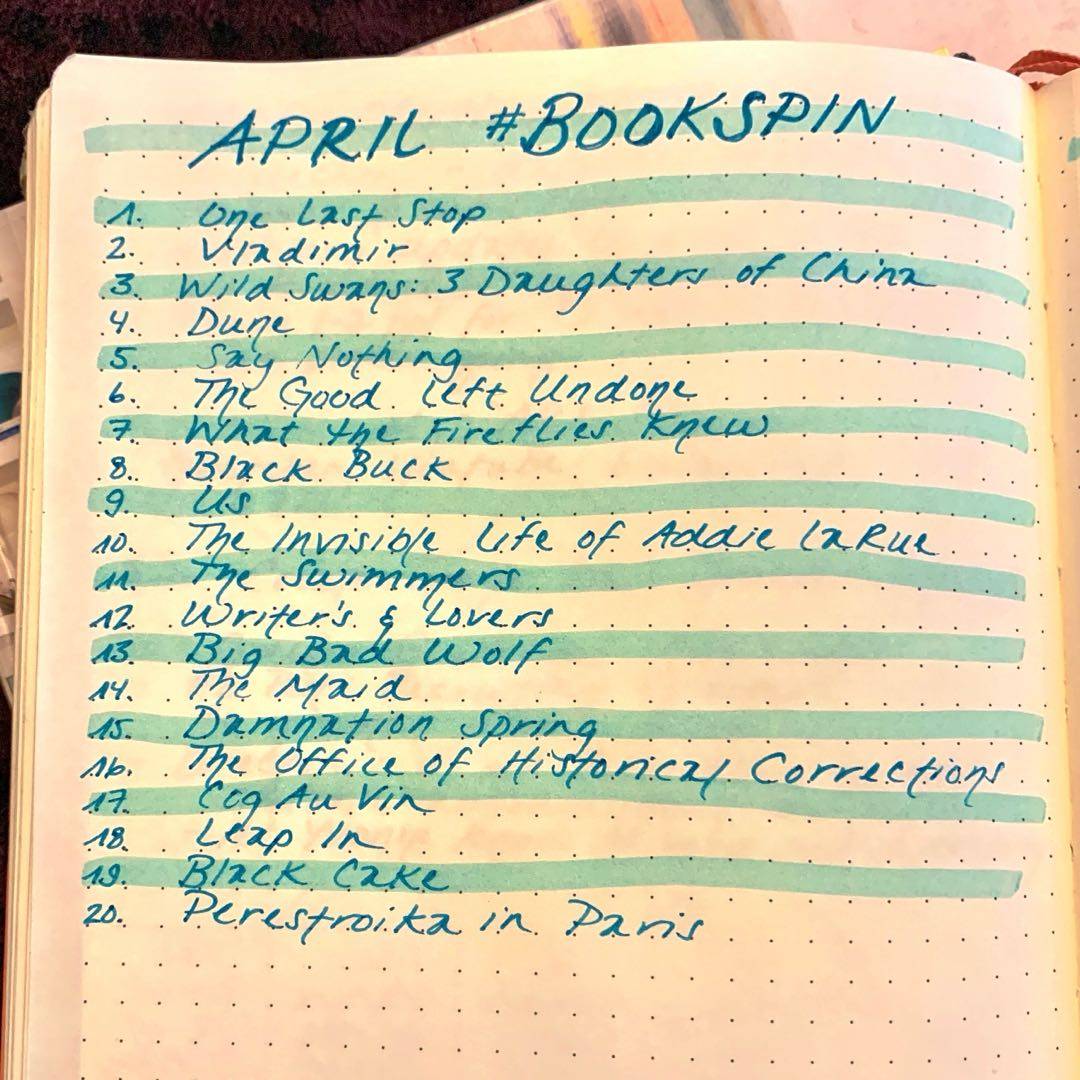 APRIL #BOOKSPIN
1. One Last Stop
2. Vladimir
3. Wild Swans: 3 Daughters of China
4. Dune
5. Say Nothing
6. The Good Left Undone
7. What the Fireflies Knew
8. Black Buck
9. Us
10. The Invisible Life of Addie LaRue
11. The Swimmers
12. Writer's & Lovers
13. Big Bad Wolf
14. The Maid
15. Damnation Spring
16. The Office of Historical Corrections
17. Coq Au Vin
18. Leap In
19. Black Cake
20. Perestroika in Paris